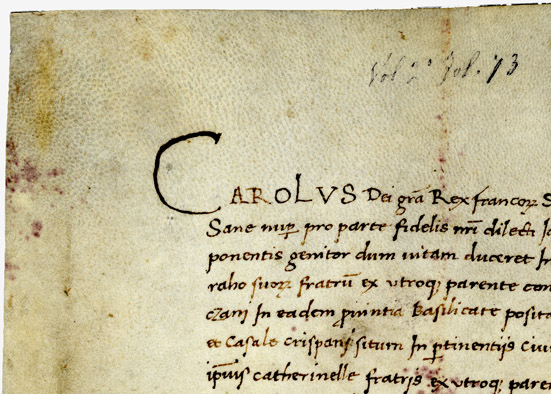 Vol 2° fol. 73
CAROLVS Dei grã Rex francoꝝ S
Sane nuꝑ pro parte fidelis nr̃i dilecti Ja
ponentis genitor dum uitam duceret In
raho suoꝝ fratrũ ex vtroqꝫ parente con
czani In eadem ꝓuintia Basilicate posito
et Casale crispani situm In ꝑtinentijs Ciui
ip̃ius catherinelle fratris ex vtroqꝫ paren